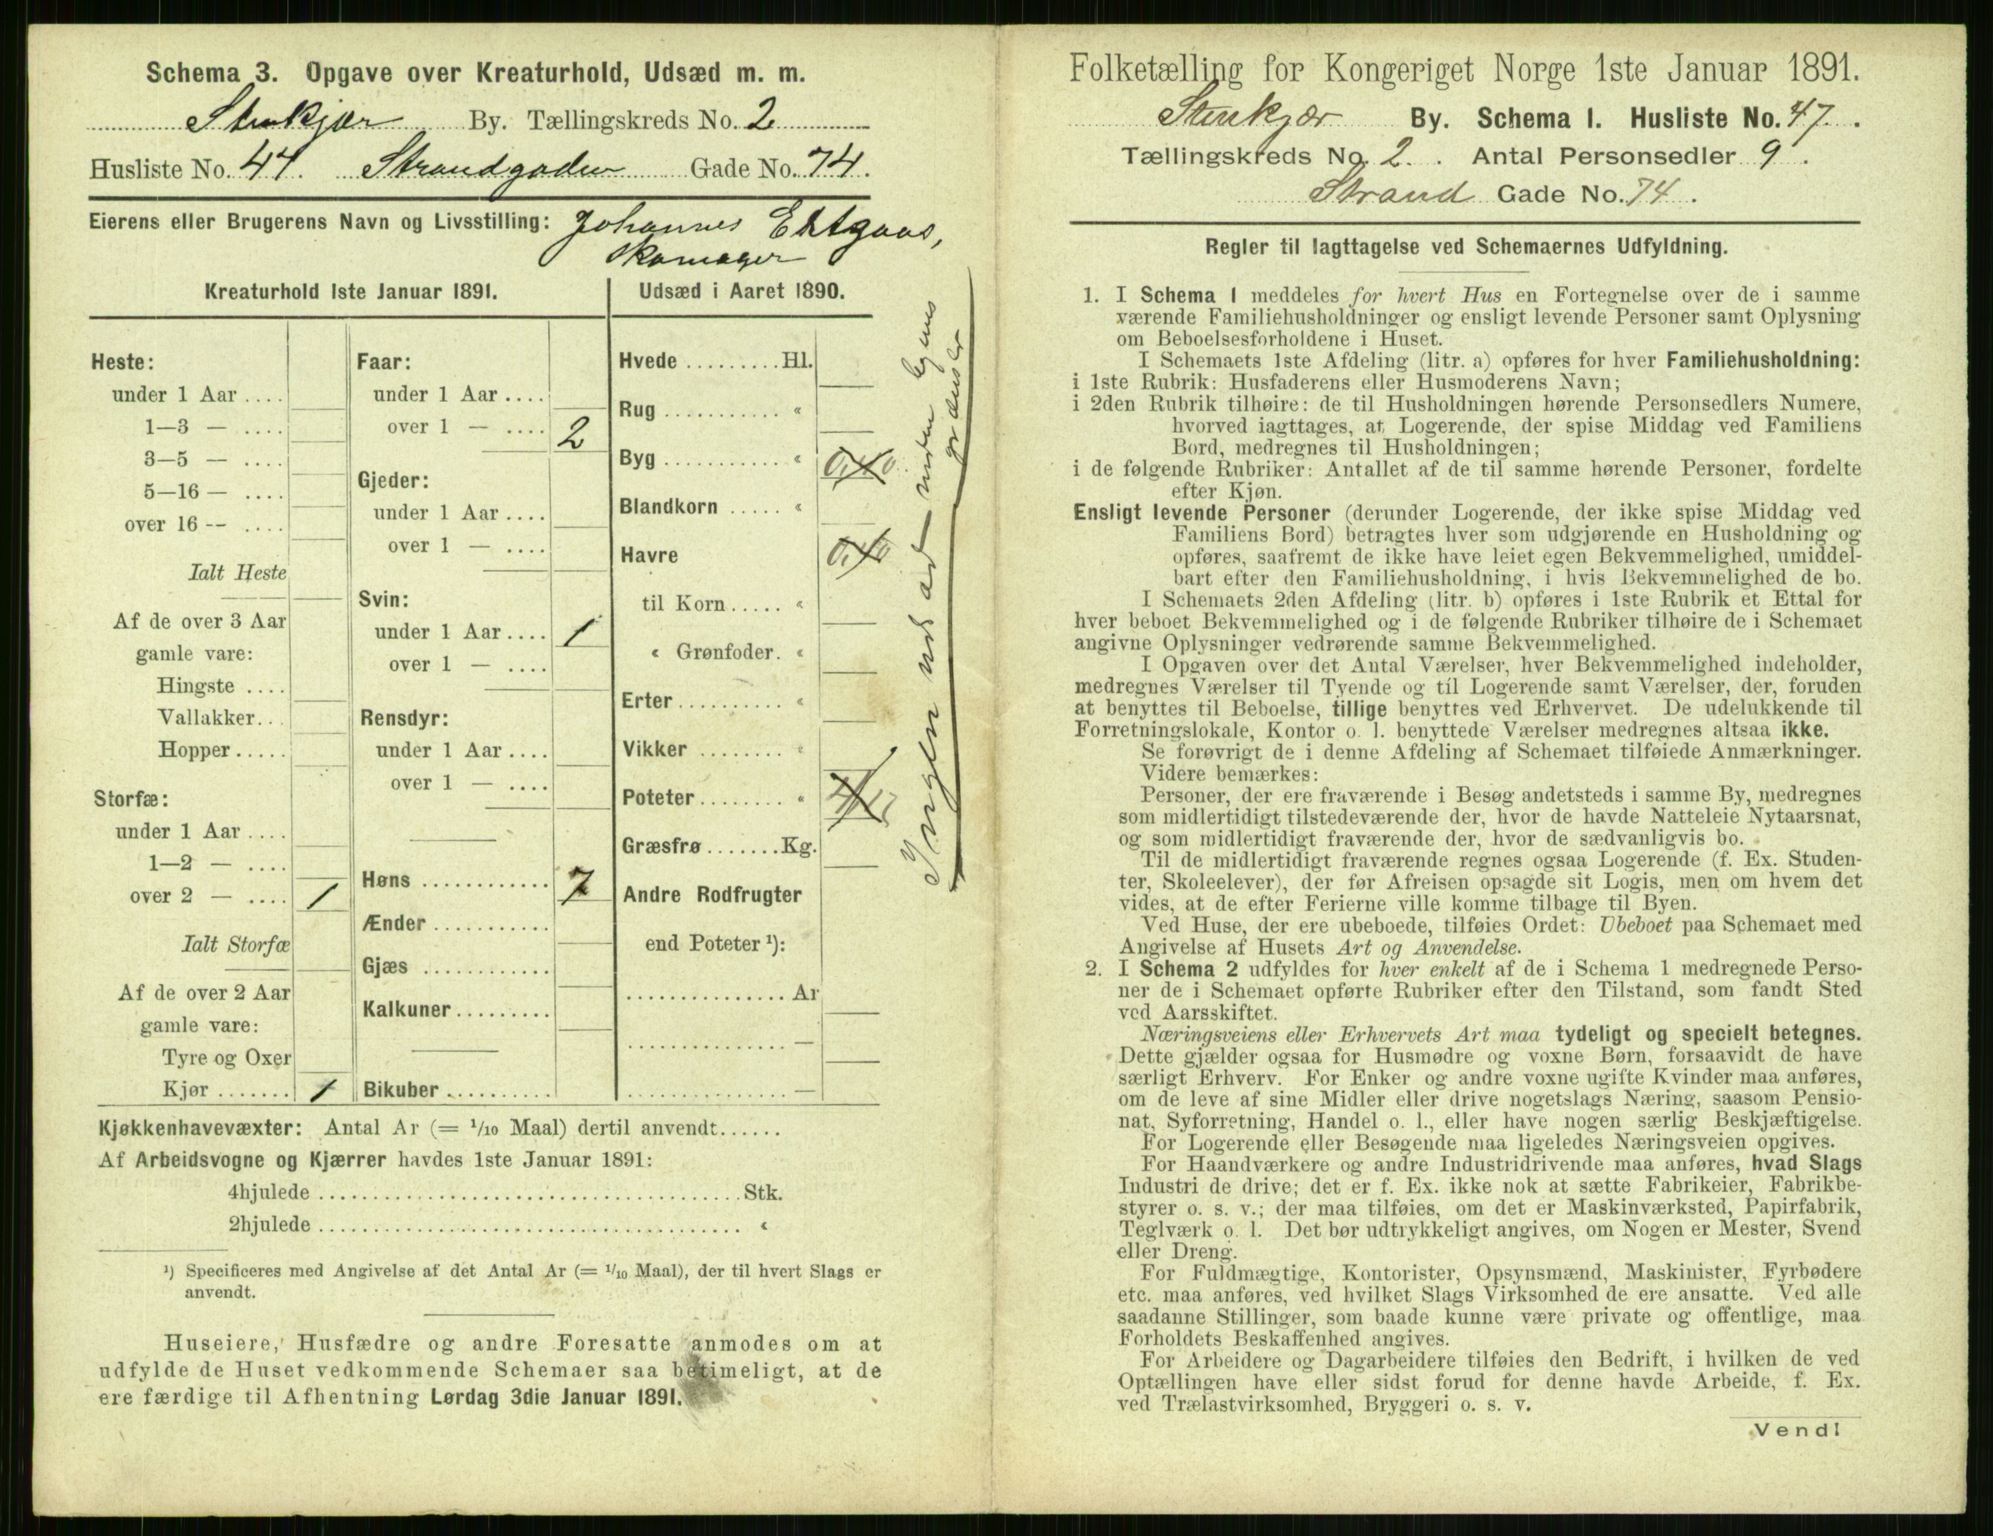 Schema 3. Opgave over Kreaturhold, Udsæd m. m.
Stenkjær By. Tællingskreds No. 2
Husliste No. 47. Strandgaden Gade No. 74.
Eierens eller Brugerens Navn og Livsstilling: Johannes
Skomager
Kreaturhold 1ste Januar 1891.
Heste:
under 1 Aar ....
1—3 — ....
3—5 — ....
5—16 — ....
over 16 -- ....
Ialt Heste
Af de over 3 Aar
gamle vare:
Hingste ....
Vallakker...
Hopper .....
Storfæ:
under 1 Aar ....
1—2 — ....
over 2 — .... 1
Ialt Storfæ
Af de over 2 Aar
gamle vare:
Tyre og Oxer
Kjør ....... 1
Faar:
under 1 Aar ....
over 1 — .... 2
Gjeder:
under 1 Aar ....
over 1 — ....
Svin:
under 1 Aar .... 1
over 1 — ....
Rensdyr:
under 1 Aar ....
over 1 — ....
Høns ............ 7
Ænder ...........
Gjæs ............
Kalkuner .........
Bikuber ..........
Udsæd i Aaret 1890.
Hvede ......... Hl.
Rug ........... «
Byg ........... « 0,40
Blandkorn ..... «
Havre 0,40
til Korn ..... «
« Grønfoder. «
Erter .......... «
Vikker ........ «
Poteter ........ «
Græsfrø ....... Kg.
Andre Rodfrugter
end Poteter ¹):
............... Ar
............... —
............... —
Ingen udsæd uden Byens
grændser
Kjøkkenhavevæxter: Antal Ar (= 1/10 Maal) dertil anvendt......
Af Arbeidsvogne og Kjærrer havdes 1ste Januar 1891:
4hjulede ........................................ Stk.
2hjulede ........................................ «
¹) Specificeres med Angivelse af det Antal Ar (= 1/10 Maal), der til hvert Slags er
anvendt.
Huseiere, Husfædre og andre Foresatte anmodes om at
udfylde de Huset vedkommende Schemaer saa betimeligt, at de
ere færdige til Afhentning Lørdag 3die Januar 1891.
Folketælling for Kongeriget Norge 1ste Januar 1891.
Stenkjær By. Schema I. Husliste No. 47.
Tællingskreds No. 2. Antal Personsedler 9.
Strand Gade No. 74.
Regler til Iagttagelse ved Schemaernes Udfyldning.
1. I Schema 1 meddeles for hvert Hus en Fortegnelse over de i samme
værende Familiehusholdninger og ensligt levende Personer samt Oplysning
om Beboelsesforholdene i Huset.
I Schemaets 1ste Afdeling (litr. a) opføres for hver Familiehusholdning:
i 1ste Rubrik: Husfaderens eller Husmoderens Navn;
i 2den Rubrik tilhøire: de til Husholdningen hørende Personsedlers Numere,
hvorved iagttages, at Logerende, der spise Middag ved Familiens
Bord, medregnes til Husholdningen;
i de følgende Rubriker: Antallet af de til samme hørende Personer, fordelte
efter Kjøn.
Ensligt levende Personer (derunder Logerende, der ikke spise Middag ved
Familiens Bord) betragtes hver som udgjørende en Husholdning og
opføres, saafremt de ikke have leiet egen Bekvemmelighed, umiddel-
bart efter den Familiehusholdning, i hvis Bekvemmelighed de bo.
I Schemaets 2den Afdeling (litr. b) opføres i 1ste Rubrik et Ettal for
hver beboet Bekvemmelighed og i de følgende Rubriker tilhøire de i Schemaet
angivne Oplysninger vedrørende samme Bekvemmelighed.
I Opgaven over det Antal Værelser, hver Bekvemmelighed indeholder,
medregnes Værelser til Tyende og til Logerende samt Værelser, der, foruden
at benyttes til Beboelse, tillige benyttes ved Erhvervet. De udelukkende til
Forretningslokale, Kontor o. l. benyttede Værelser medregnes altsaa ikke.
Se forøvrigt de i denne Afdeling af Schemaet tilføiede Anmærkninger.
Videre bemærkes:
Personer, der ere fraværende i Besøg andetsteds i samme By, medregnes
som midlertidigt tilstedeværende der, hvor de havde Natteleie Nytaarsnat,
og som midlertidigt fraværende der, hvor de sædvanligvis bo.
Til de midlertidigt fraværende regnes ogsaa Logerende (f. Ex. Studen-
ter, Skoleelever), der før Afreisen opsagde sit Logis, men om hvem det
vides, at de efter Ferierne ville komme tilbage til Byen.
Ved Huse, der ere ubeboede, tilføies Ordet: Ubeboet paa Schemaet med
Angivelse af Husets Art og Anvendelse.
2. I Schema 2 udfyldes for hver enkelt af de i Schema 1 medregnede Perso-
ner de i Schemaet opførte Rubriker efter den Tilstand, som fandt Sted
ved Aarsskiftet.
Næringsveiens eller Erhvervets Art maa tydeligt og specielt betegnes.
Dette gjælder ogsaa for Husmødre og voxne Børn, forsaavidt de have
særligt Erhverv. For Enker og andre voxne ugifte Kvinder maa anføres,
om de leve af sine Midler eller drive nogetslags Næring, saasom Pensio-
nat, Syforretning, Handel o. l., eller have nogen særlig Beskjæftigelse.
For Logerende eller Besøgende maa ligeledes Næringsveien opgives.
For Haandværkere og andre Industridrivende maa anføres, hvad Slags
Industri de drive; det er f. Ex. ikke nok at sætte Fabrikeier, Fabrikbe-
styrer o. s. v.; der maa tilføies, om det er Maskinværksted, Papirfabrik,
Teglværk o. l. Det bør udtrykkeligt angives, om Nogen er Mester, Svend
eller Dreng.
For Fuldmægtige, Kontorister, Opsynsmænd, Maskinister, Fyrbødere
etc. maa anføres, ved hvilket Slags Virksomhed de ere ansatte. Ved alle
saadanne Stillinger, som baade kunne være private og offentlige, maa
Forholdets Beskaffenhed angives.
For Arbeidere og Dagarbeidere tilføies den Bedrift, i hvilken de ved
Optællingen have eller sidst forud for denne havde Arbeide, f. Ex.
ved Trælastvirksomhed, Bryggeri o. s. v.
Vend!